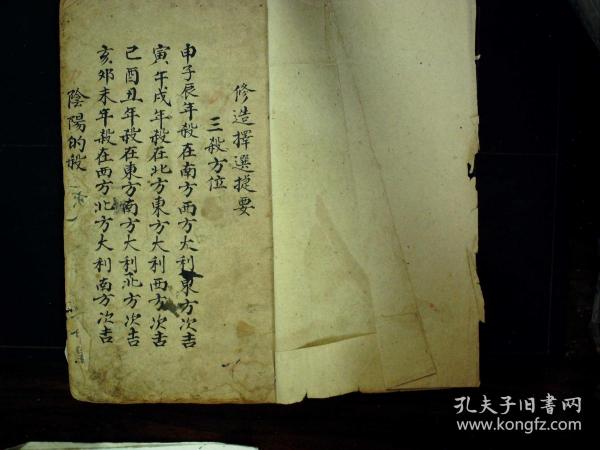 修造擇選捷要
三殺方位
申子辰年殺在南方西方大利東方次吉
寅午戌年殺在北方東方大利西方次吉
巳酉丑年殺在東方南方大利北方次吉
亥卯未年殺在西方北方大利南方次吉
陰陽的殺
孔夫子旧书网
www.kongfz.com